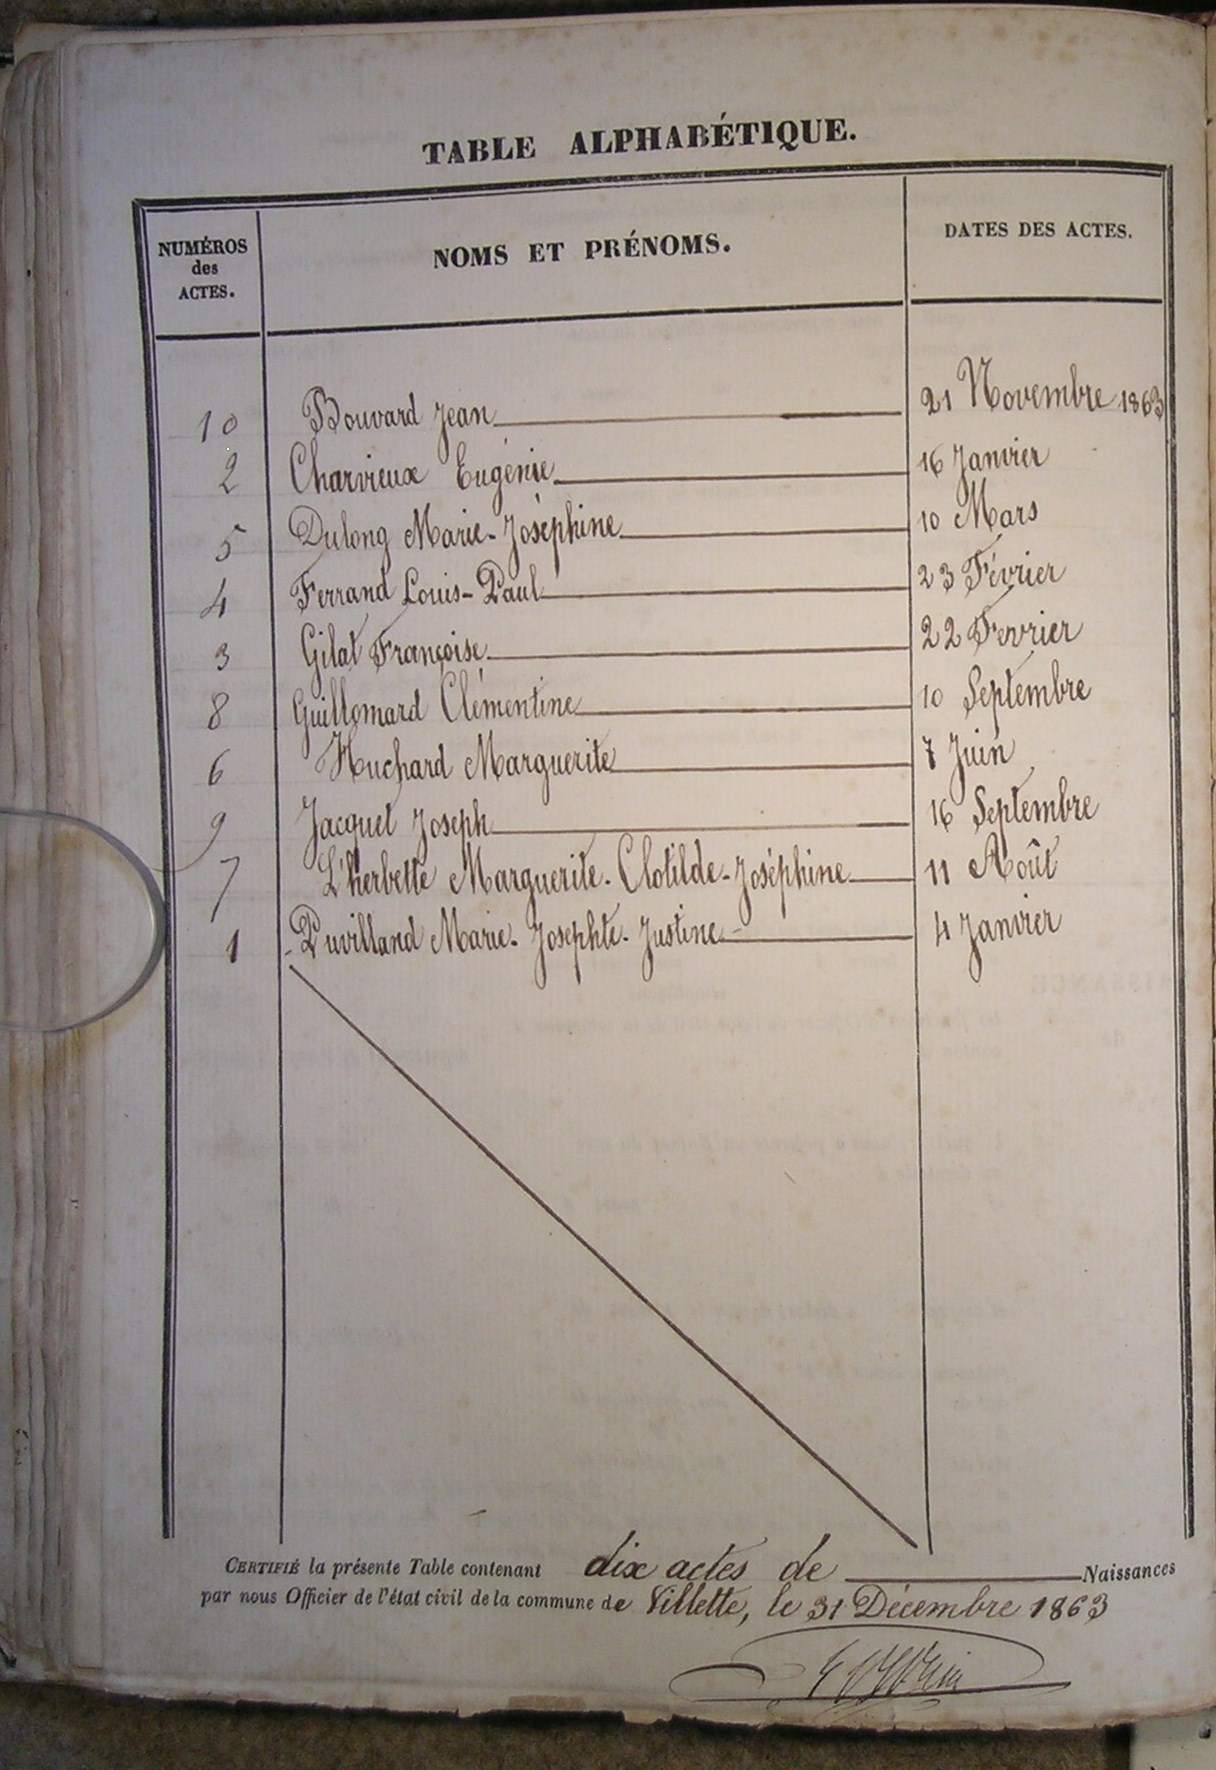 TABLE ALPHABÉTIQUE.
NUMÉROS des ACTES. NOMS ET PRÉNOMS. DATES DES ACTES.
10 Bouvard Jean 21 Novembre 1863
2 Charvieux Eugénie 16 Janvier
5 Dulong Marie-Joséphine 10 Mars
4 Ferrand Louis-Paul 23 Février
3 Gilat Françoise 22 Fevrier
8 Guillomard Clémentine 10 Septembre
6 Huchard Marguerite 7 Juin
9 Jacquet Joseph 16 Septembre
7 L'herbette Marguerite-Clotilde-Joséphine 11 Août
1 Puvilland Marie-Josephte-Justine 4 Janvier
CERTIFIÉ la présente Table contenant dix actes de Naissances
par nous Officier de l'état civil de la commune de Villette, le 31 Décembre 1863